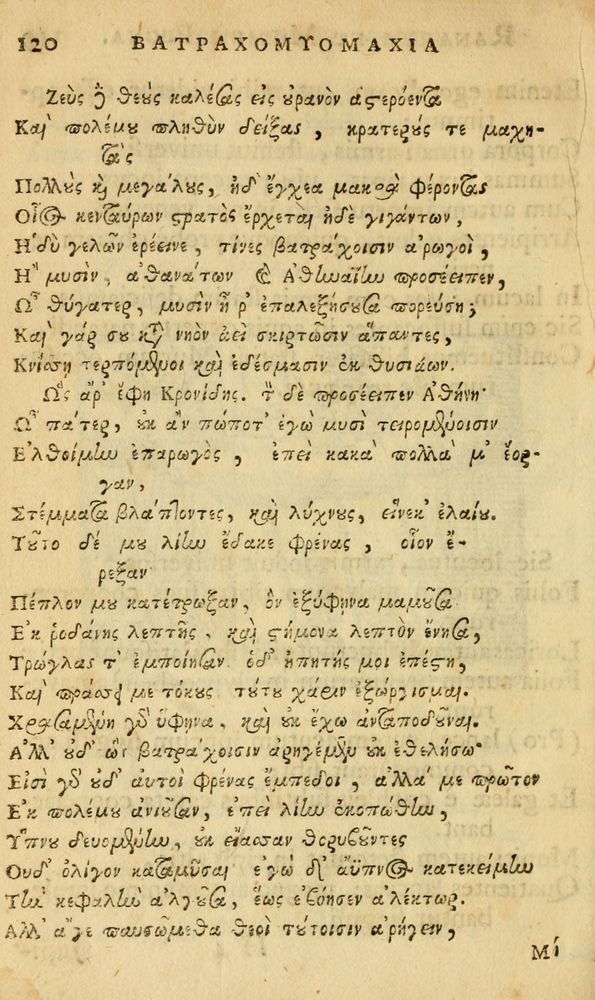 120 ΒΑΤΡΑΧΟΜΥΟΜΑΧΙΑ
Ζεὺς ȣ̓͂ θεὺς καλέσας εἰς ȣ̓ρανὸν ἀστερόεντα
Καὶ πολέμȣ πληθὺν δείξας, κρατερȣ́ς τε μαχη-
τὰς
Πολλȣ̀ς κ̀ μεγάλȣς, ἠδ' ἔγχεα μακρὰ φέροντας
Οἷος κενταύρων στρατὸς ἔρχεται ἠδὲ γιγάντων,
Ἡδὺ γελῶν ἐρέεινε, τίνες βατράχοισιν ἀρωγοὶ,
Ἢ μυσὶν, ἀθανάτων καὶ Ἀθηναίην προσέειπεν,
Ὦ θύγατερ, μυσὶν ἦ ῥ' ἐπαλεξήσȣσα πορεύσῃ;
Καὶ γάρ σȣ κατὰ νηὸν ἀεὶ σκιρτῶσιν ἅπαντες,
Κνίσῃ τερπόμενοι καὶ ἐδέσμασιν ἐκ θυσιάων.
Ὣς ἄρ' ἔφη Κρονίδης. τὸν δὲ προσέειπεν Ἀθήνη·
Ὦ πάτερ, ȣ̓κ ἂν πώποτ' ἐγὼ μυσὶ τειρομένοισιν
Ἐλθοίμην ἐπαρωγὸς, ἐπεὶ κακὰ πολλὰ μ' ἔορ-
γαν,
Στέμματα βλάπτοντες, καὶ λύχνȣς, εἵνεκ' ἐλαίȣ.
Τȣ͂το δέ μȣ λίην ἔδακε φρένας, οἷον ἔ-
ρεξαν·
Πέπλον μȣ κατέτρωξαν, ὃν ἐξύφηνα καμȣ͂σα
Ἐκ ῥοδάνης λεπτῆς, καὶ στήμονα λεπτὸν ἔνησα,
Τρώγλας τ' ἐμποίησαν. ὁδ' ἠπητής μοι ἐπέστη,
Καὶ πράσσει με τόκȣς τȣ́τȣ χάριν ἐξώργισμαι.
Χρησαμένη γὰρ ὕφηνα, καὶ ȣ̓κ ἔχω ἀνταποδȣ͂ναι.
Ἀλλ' ȣ̓δ' ὣς βατράχοισιν ἀρηγέμεν ȣ̓κ ἐθελήσω·
Εἰσὶ γὰρ ȣ̓δ' αὐτοὶ φρένας ἔμπεδοι, ἀλλά με πρῶτον
Ἐκ πολέμȣ ἀνιȣ͂σαν, ἐπεὶ λίην ἐκοπώθην,
Ὕπνȣ δευομένην, ȣ̓κ εἴασαν θορυβȣ͂ντες
Οὐδ' ὀλίγον καταμῦσαι· ἐγὼ δ' ἄϋπνος κατεκείμην
Τὴν κεφαλὴν ἀλγȣ͂σα, ἕως ἐβόησεν ἀλέκτωρ.
Ἀλλ' ἄγε παυσώμεθα θεοὶ τȣ́τοισιν ἀρήγειν,
Μή